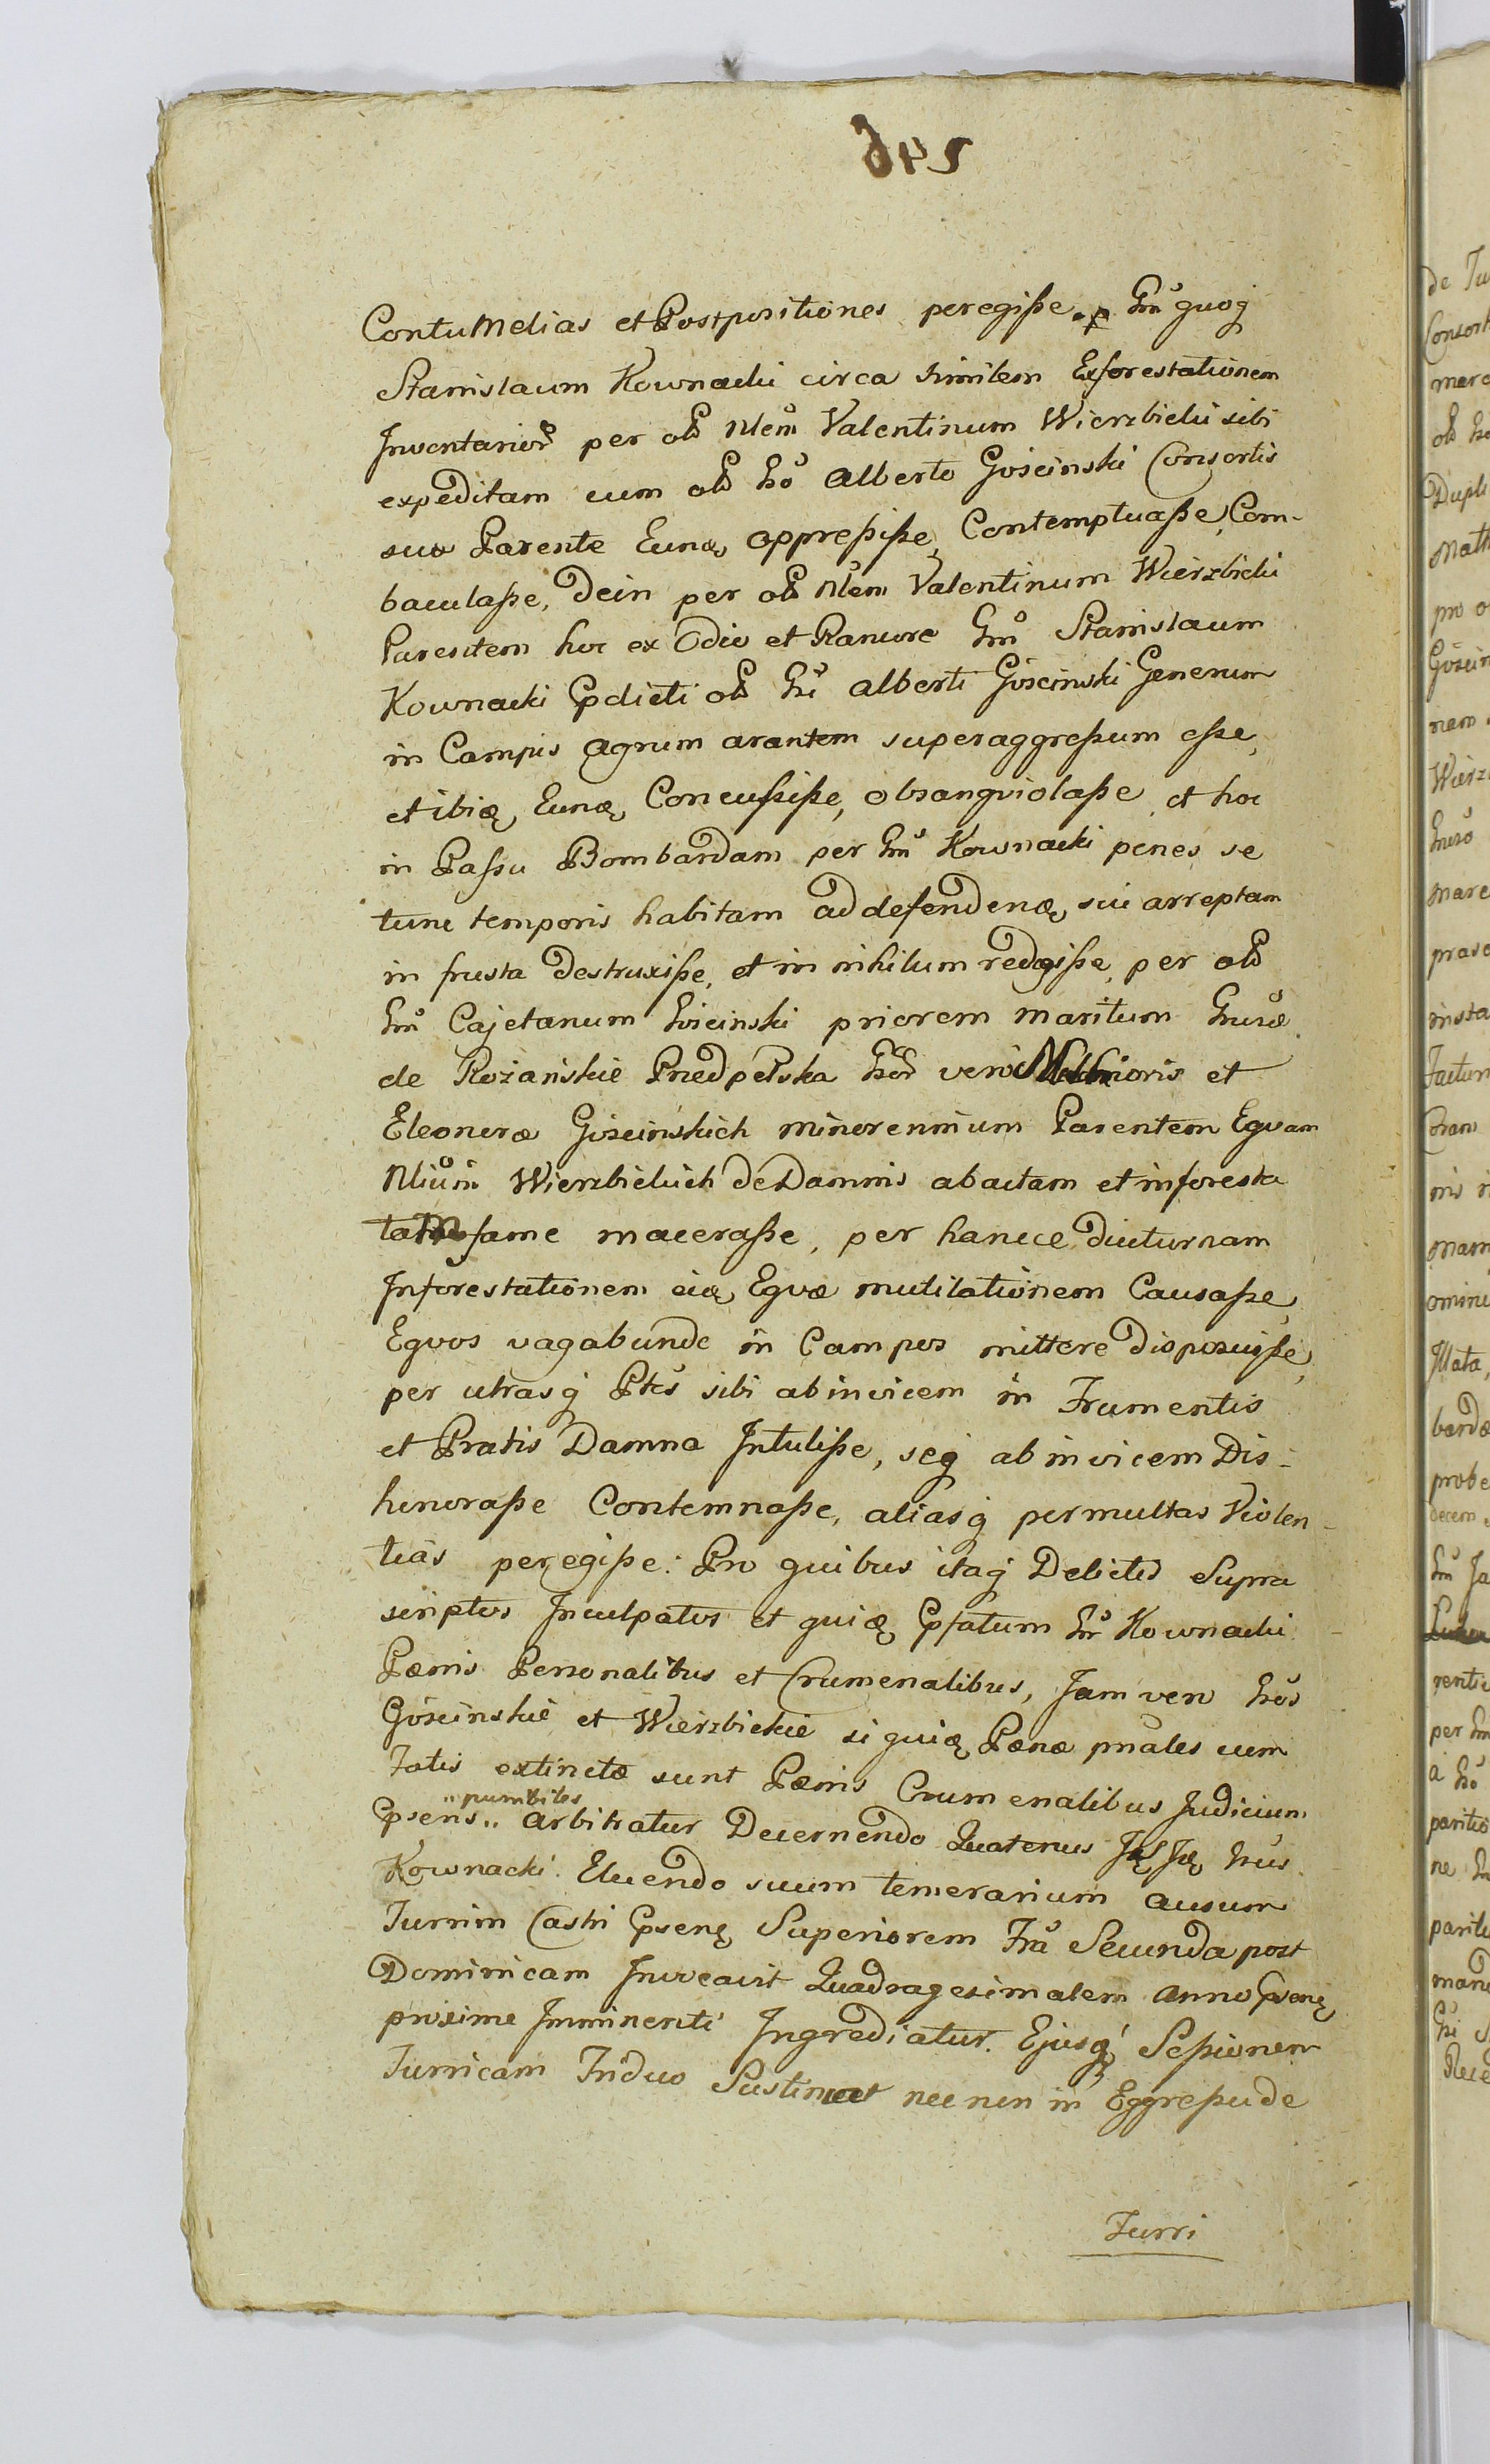 Contumelias et Postpositiones peregiße. Gnũ quoq̃
Stanislaum Kownacki circa similem Exforestationem
Inventarior̃ per olb̃ Nlem̃ Valentinum Wierzbicki sibi
expeditam cum olb̃ Gsõ Alberto Gościnski Consortis
suæ Parente Eunq̃ oppreßiße, Contemptuaße, Com-
baculaße, dein per olb̃ Nlem̃ Valentinum Wierzbicki
Parentem hoc ex Odio et Rancore Gnũ Stanislaum
Kownacki Pdicti olb̃ Gsĩ Alberti Gościnski Generum
in Campis Agrum arantem superaggreßum eße,
et ibiq̃ Eunq̃ Concußiße, obsangviolaße et hoc
in Paßu Bombardam per Gnũ Kownacki penes se
tunc temporis habitam ad defendenq̃ sui arreptam
in frusta destruxiße, et in nihilum redegiße, per olb̃
Gnũ Cajetanum Gościnski priorem maritum Gnsæ
de Rożańskie Gsor̃ vero Melchioris et
Eleonoræ Gościnskich minorennium Parentem Eqvam
Nliũm Wierzbickich de Damnis abactam et inforesta
tam fame maceraße, per hancce diuturnam
Inforestationem eiq̃ Eqvæ mutilationem Causaße,
Eqvos vagabunde in Campos mittere disposuiße,
per utrasq̃ Ptes̃ sibi ab invicem in Frumentis
et Pratis Damna Intuliße, seq̃ ab invicem Dis-
honoraße Contemnaße, aliasq̃ permultas Violen-
tias peregiße: Pro quibus itaq̃ Delictis Supra
scriptos Inculpatos et quiq̃ Pfatum Gnũ Kownacki
Pænis Personalibus et Crumenalibus, Jam vero Gsos̃
Gościnskie et Wierzbickie siquiq̃ Pænæ pnales cum
Fatis extinctæ sunt Pænis Crumenalibus Judicium
"punibiles
Psens̃" arbitratur Decernendo Quatenus Gsus̃
Kownacki Eluendo suum temerarium ausum
Turrim Castri Psenq̃ Superiorem Frã Secunda post
Dominicam Invocavit Quadragesimalem Anno Psenq̃
proxime Imminenti Ingrediatur. Ejusq̃ Seßionem
Turricam Triduo Sustineat nec non in Eggreßu de
Turri